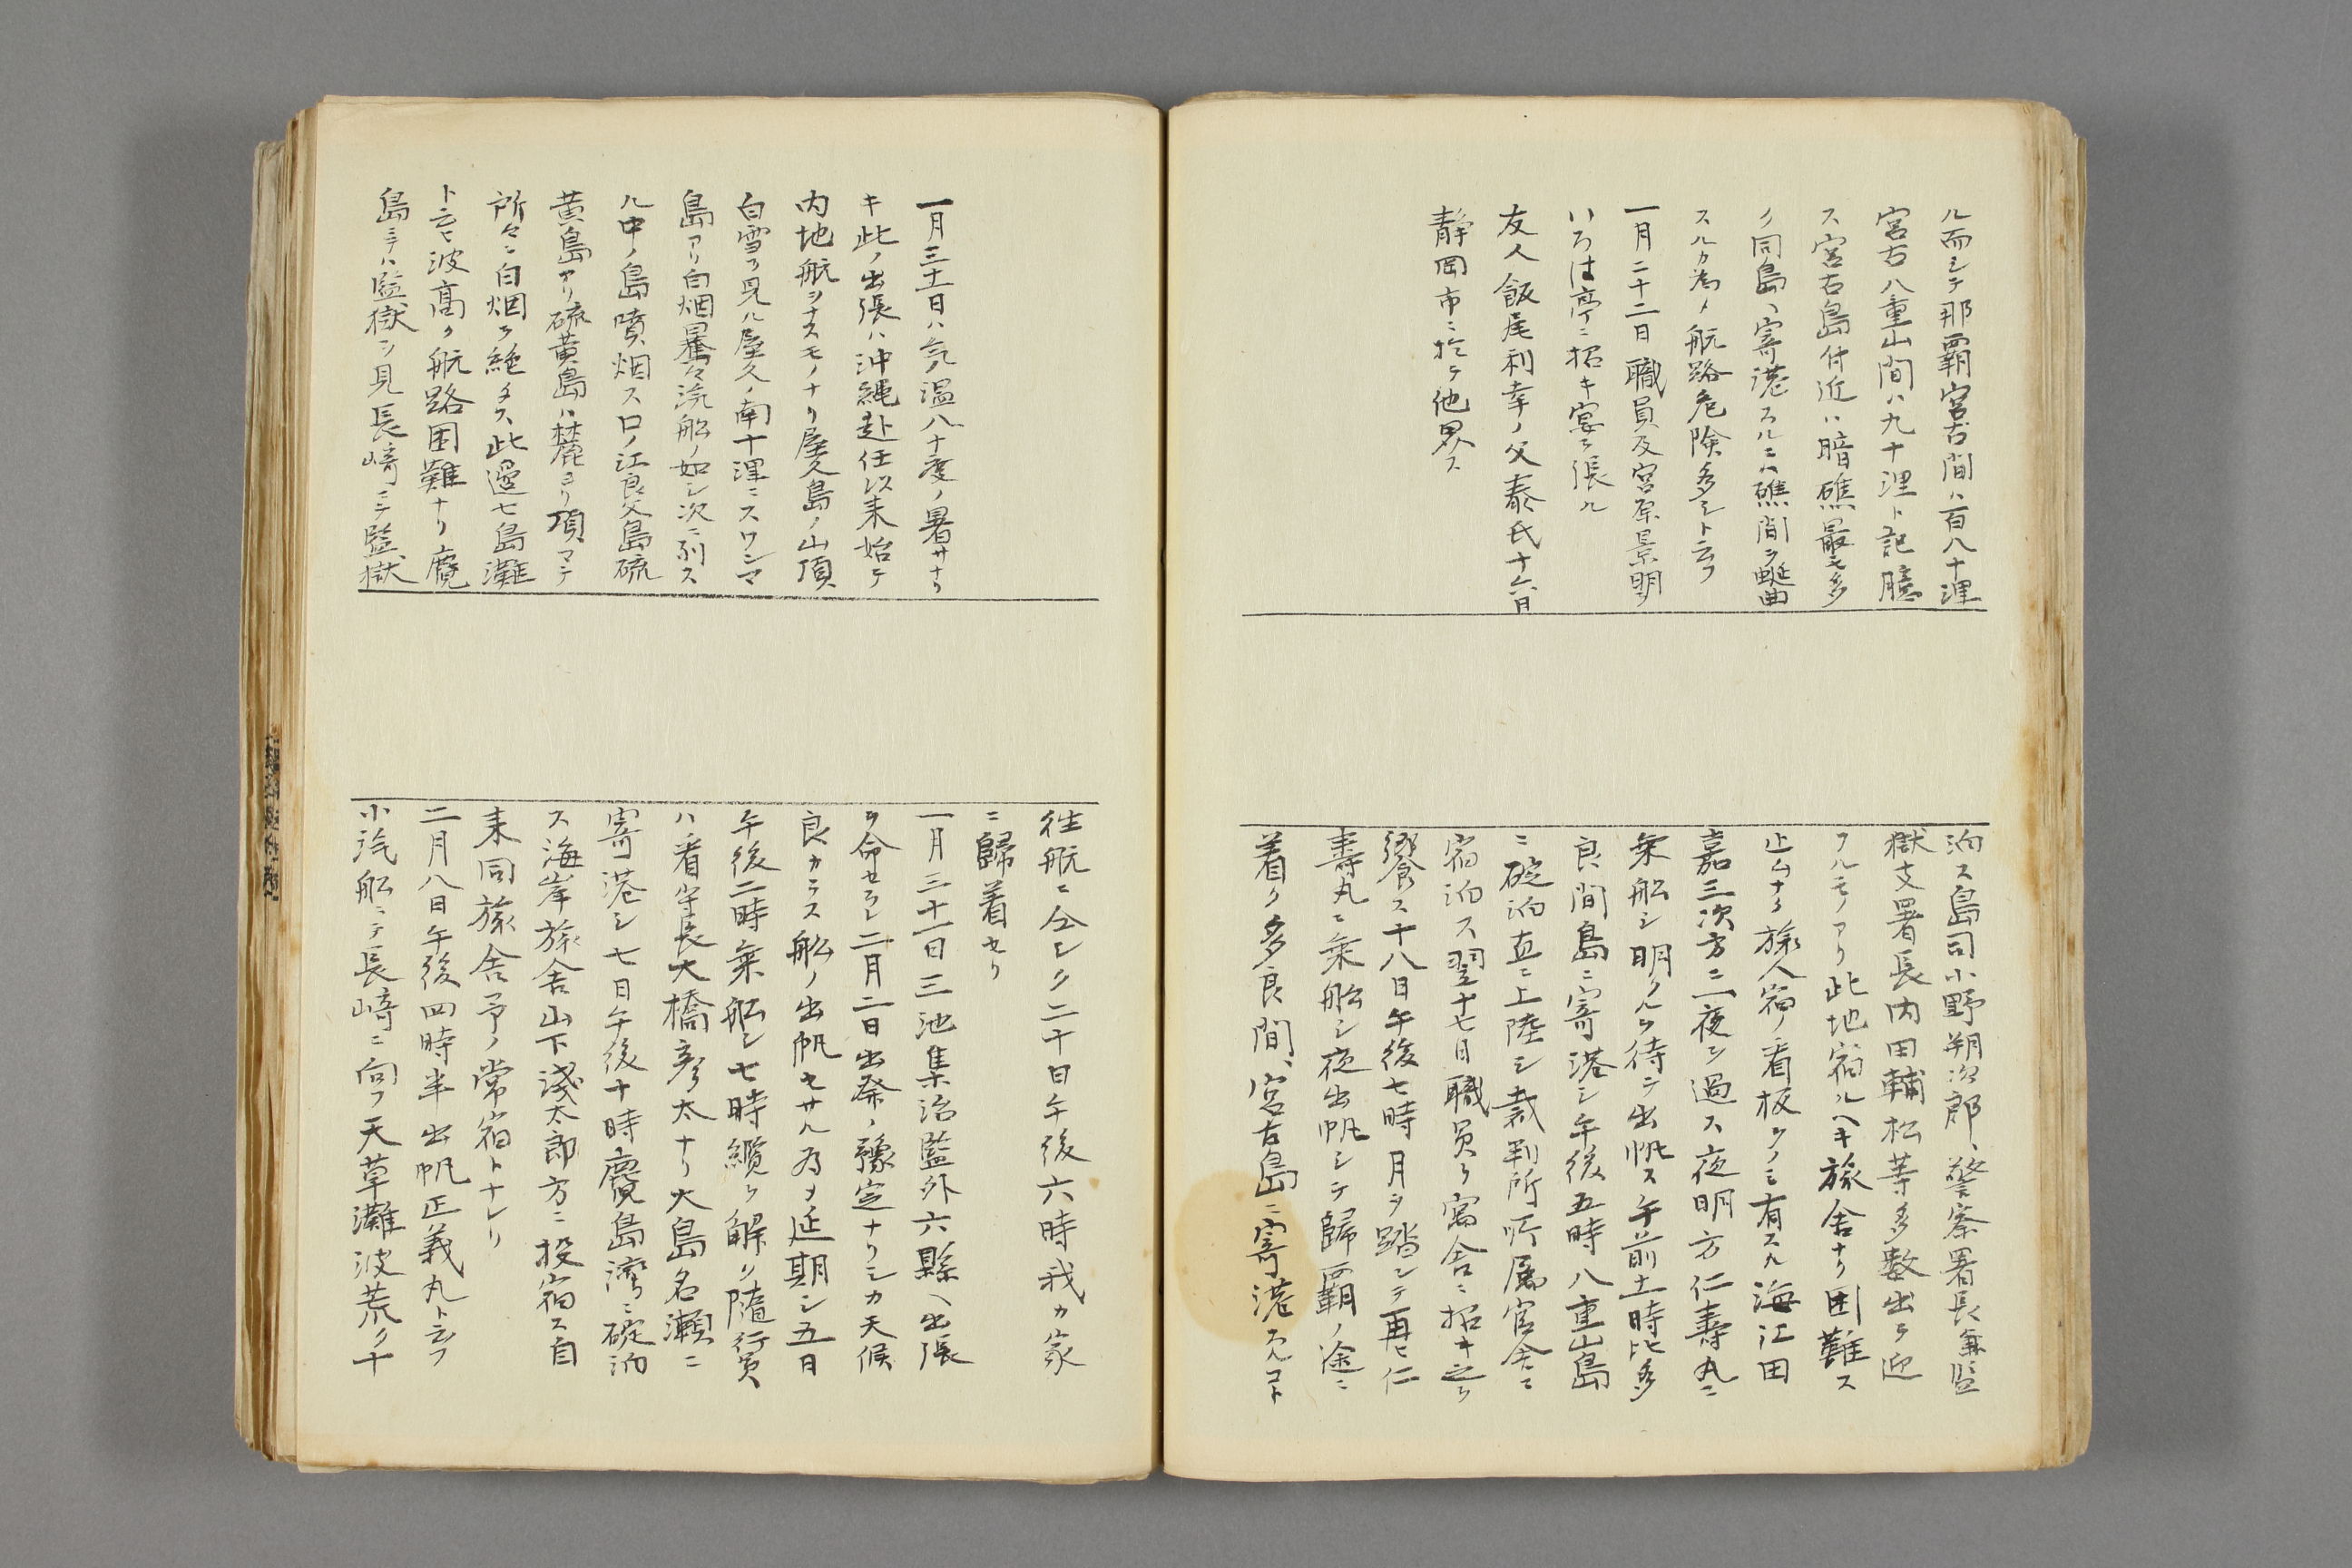 ル而シテ那覇宮古間ハ百八十浬
宮古八重山間ハ九十浬ト記臆
ス宮古島付近ハ暗礁最モ多
ク同島ヘ寄港スルニハ礁間ヲ蜒曲
スルカ為メ航路危険多シト云フ
一月二十二日職員及宮原景明ヲ
いろは亭ニ招キ宴ヲ張ル
友人飯尾利幸ノ父泰氏十六日
静岡市ニ於テ他界ス
泊ス島司小野朔次郎、警察署長兼監
獄支署長内田輔松等多数出テ迎
フルモノアリ此地宿ルヘキ旅舎ナク困難ス
止ムナク旅人宿ノ看板ヲノミ有スル海江田
嘉三次方ニ一夜ヲ過ス夜明方仁壽丸ニ
乗船シ明クルヲ待テ出帆ス午前十一時比多
良間島ニ寄港シ午後五時八重山島
ニ碇泊直ニ上陸シ裁判所所属官舎ニ
宿泊ス翌十七日職員ヲ寓舎ニ招キ之ヲ
饗ス十八日午後七時月ヲ踏ンテ再ヒ仁
壽丸ニ乗船シ夜出帆シテ歸覇ノ途ニ
着ク多良間、宮古島ニ寄港スルコト
一月三十一日ハ気温八十度ノ暑サナリ
キ此ノ出張ハ沖縄赴任以来始テ
内地航ヲナスモノナリ屋久島ノ山頂
白雪ヲ見ル屋久ノ南十浬ニスワシマ
島アリ白烟騰々汽船ノ如シ次ニ列ス
ル中ノ島噴烟ス口ノ江良父島硫
黄島アリ硫黄島ハ麓ヨリ頂マテ
所々ニ白烟ヲ絶タス此邊七島灘
ト云ヒ波高ク航路困難ナリ麑
島ニテハ監獄ヲ見長﨑ニテ監獄
往航ニ仝シク二十日午後六時我カ家
ニ歸着セリ
一月三十一日三池集治監外六縣ヘ出張
ヲ命セラレ二月二日出發ノ豫定ナリシカ天候
良カラス船ノ出帆セサル為メ延期シ五日
午後二時乗船シ七時纜ヲ解ク隨行員
ハ看守長大橋彦太ナリ大島名瀬ニ
寄港シ七日午後十時麑島湾ニ碇泊
ス海岸旅舎山下淺太郎方ニ投宿ス自
来同旅舎予ノ常宿トナレリ
二月八日午後四時半出帆正義丸ト云フ
小汽船ニテ長﨑ニ向フ天草灘波荒ク十